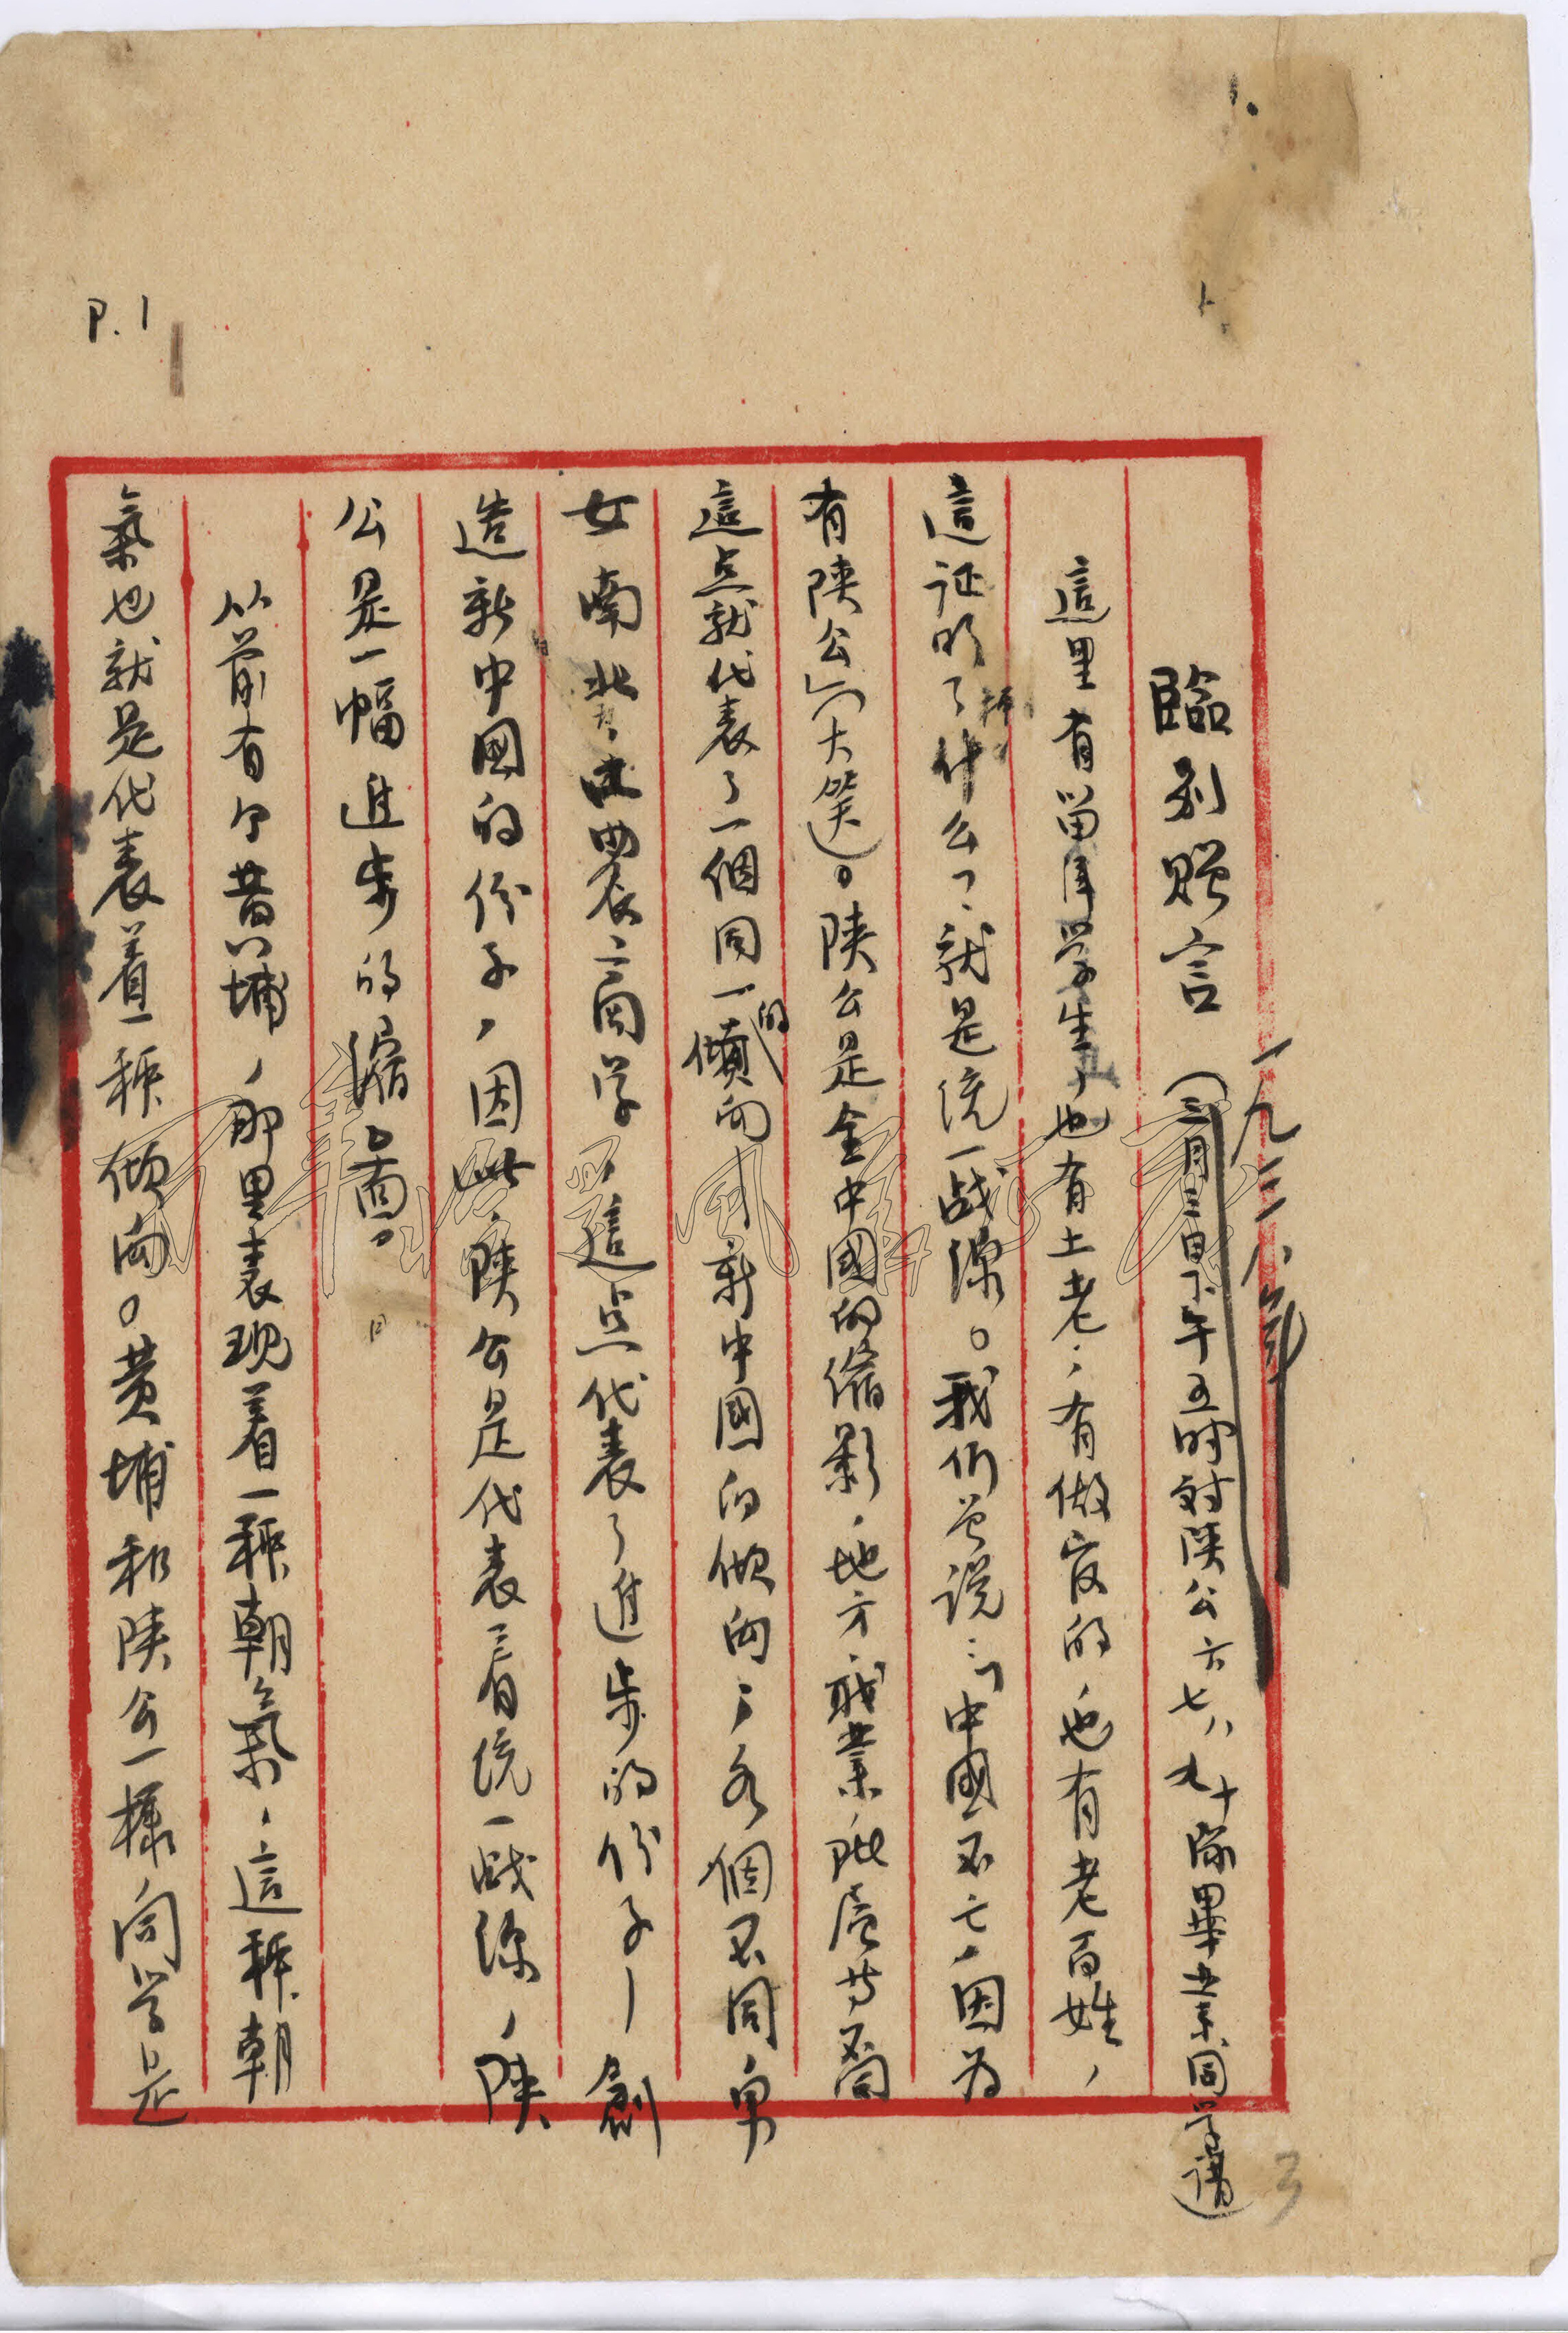 P.1
一九三八年
臨别赠言(三月三日下午五时对陕公六七八九十隊畢业同学講)
這里有留洋学生,也有土老;有做官的,也有老百姓,
這证明了什么?就是统一战線。我们曾说:「中國不亡,因为
有陕公」(大笑)。陕公是全中國的縮影,地方、職業、階層等不同
這点就代表了一個同一的傾向——新中國的傾向;各個不同男
女南北農工商学,這点代表了進步的份子—創
造新中國的份子,因此陕公是代表着统一战線,陕
公是一幅進步的縮图。
从前有个黄埔,那里表现着一種朝氣,這種朝
氣也就是代表着一種傾向。黄埔和陕公一樣,同学是
3